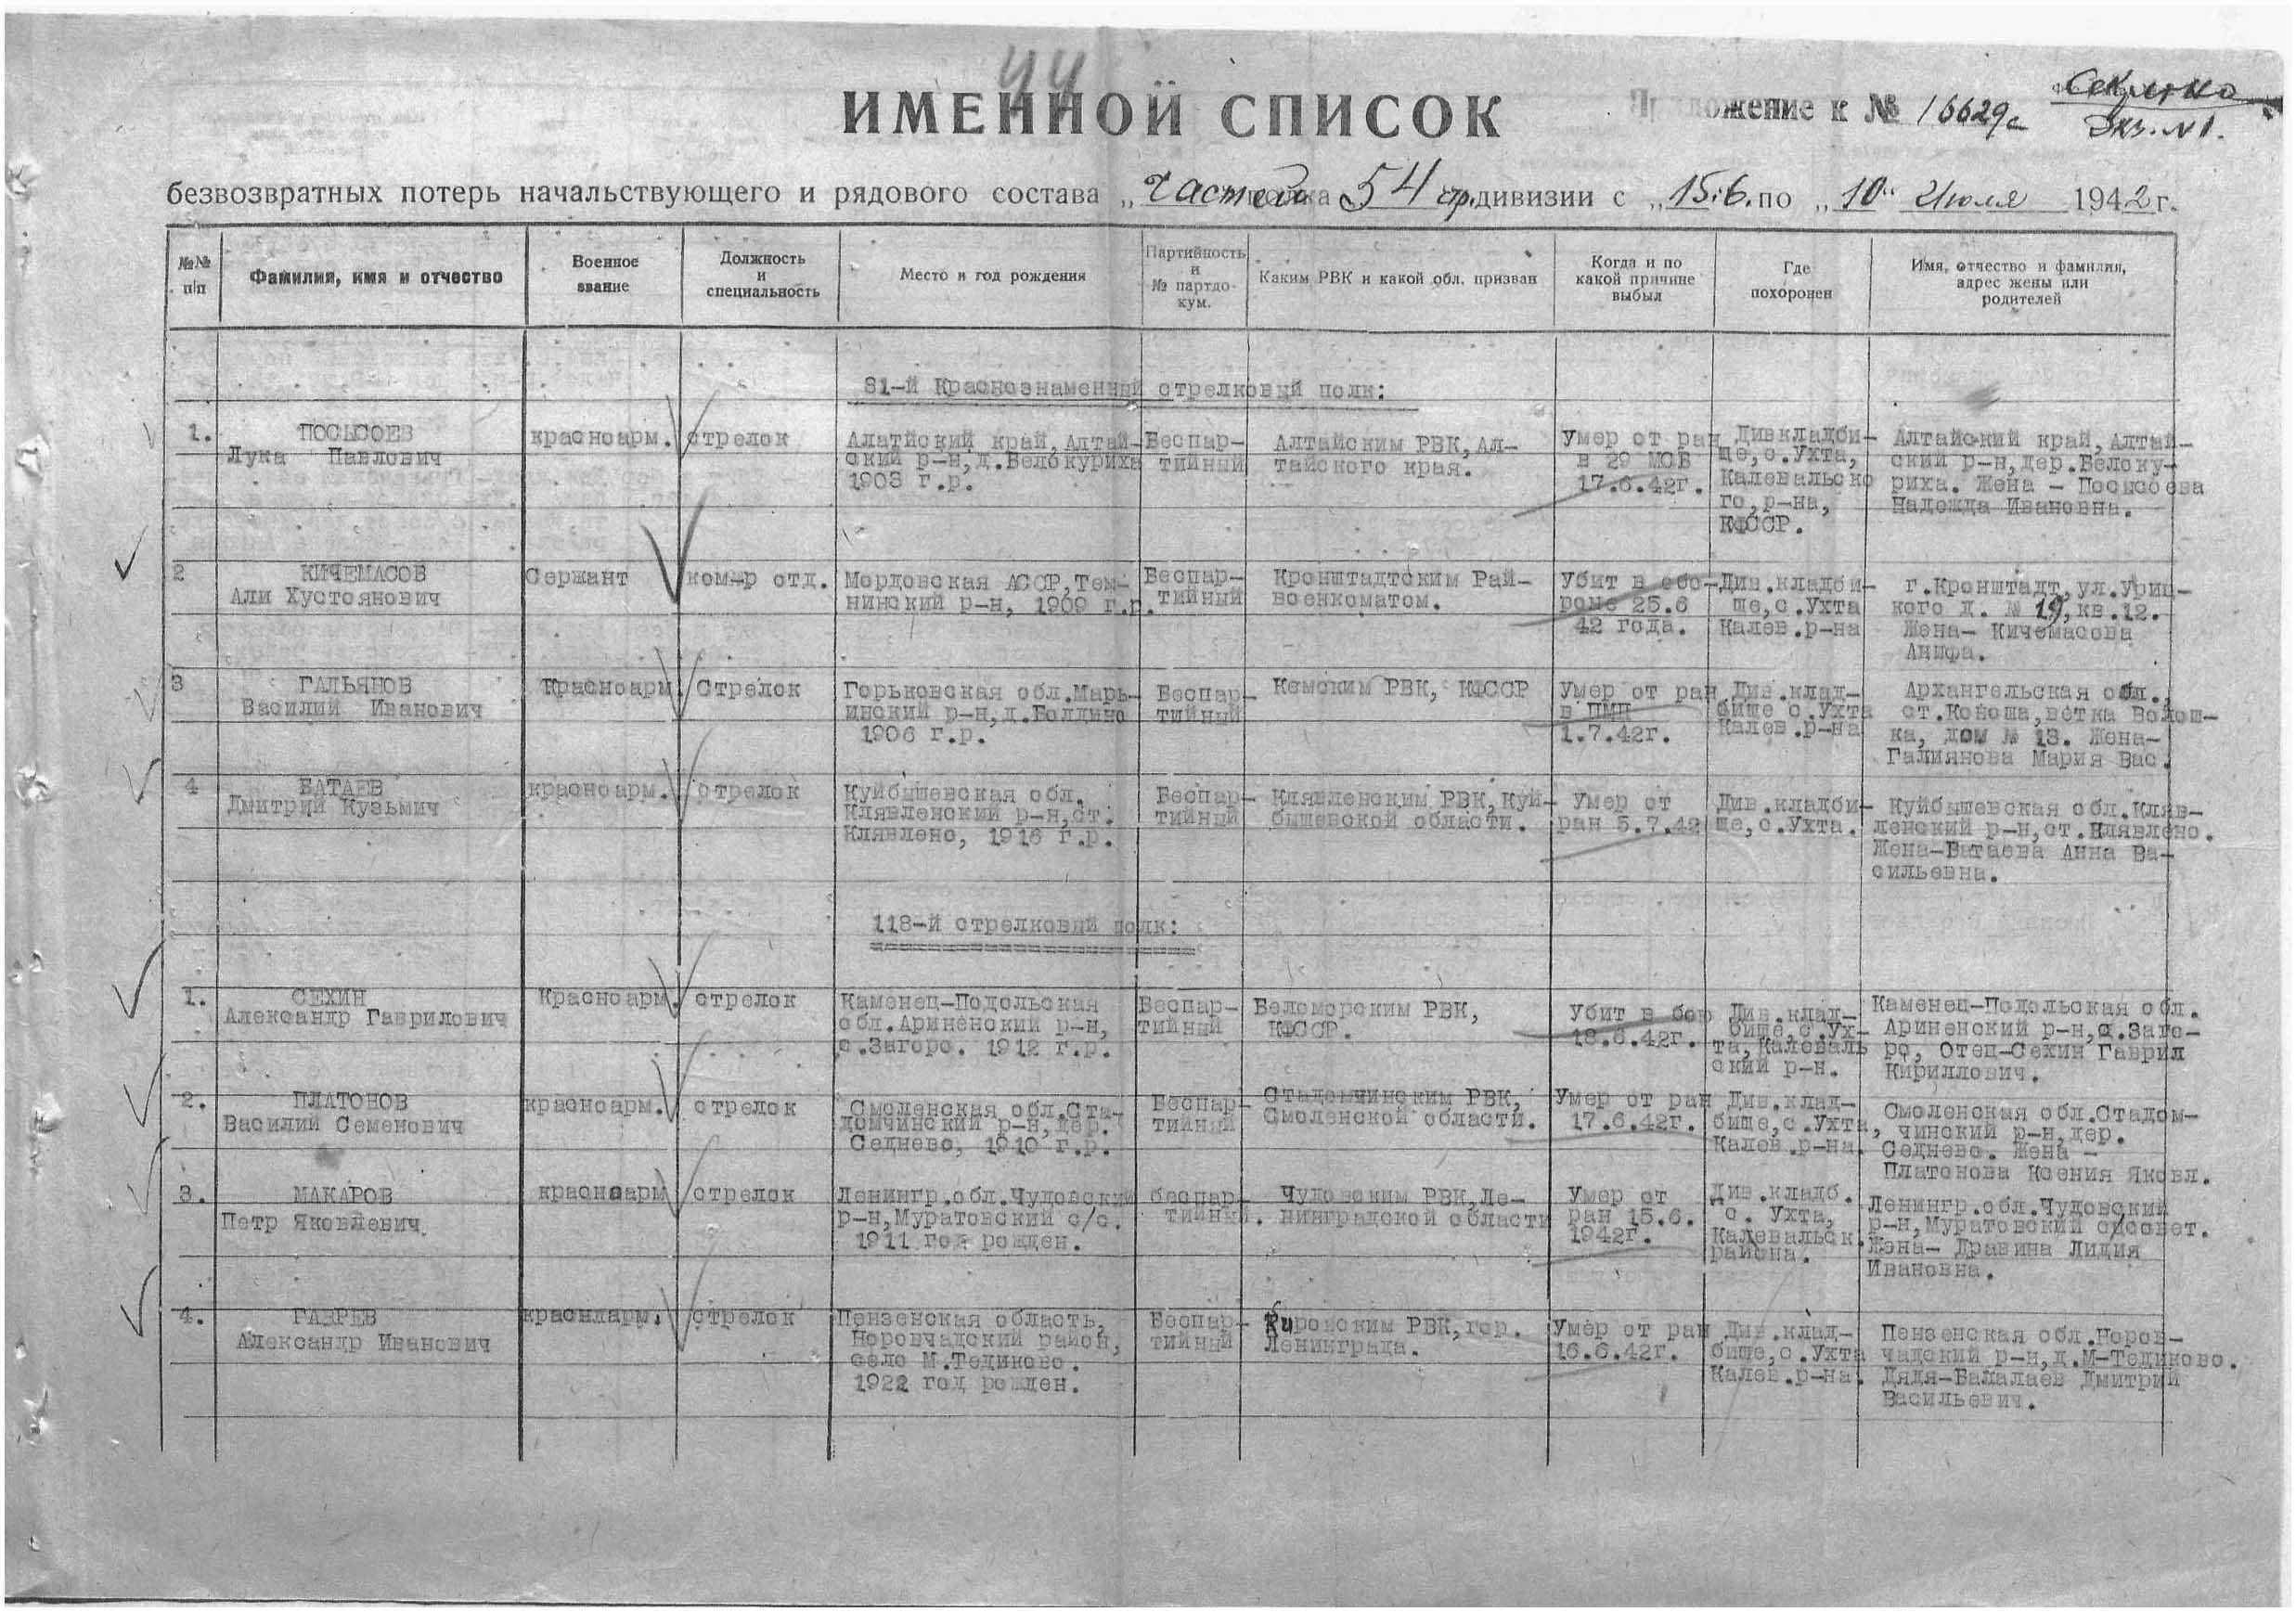 44
ИМЕННОЙ СПИСОК
Приложение к № 16629с
Секретно
Экз. №1.
безвозвратных потерь начальствующего и рядового состава „Частей 54 стр. дивизии с „15.6. по „10" Июля 1942 г.
№№ п/п
Фамилия, имя и отчество
Военное звание
Должность и специальность
Место и год рождения
Партийность и № партдокум.
Каким РВК и какой обл. призван
Когда и по какой причине выбыл
Где похоронен
Имя, отчество и фамилия, адрес жены или родителей
81-й Краснознаменный стрелковый полк:
1.
ПОСЫСОЕВ
Лука Павлович
красноарм.
стрелок
Алатйский край, Алтай-
ский р-н, д.Белокуриха
1903 г.р.
Беспар-
тийный
Алтайским РВК, Ал-
тайского края.
Умер от ран
в 29 МСБ
17.6.42г.
Дивкладби-
ще, с.Ухта,
Калевальско
го, р-на,
КФССР.
Алтайский край, Алтай-
ский р-н, дер.Белоку-
риха. Жена - Посысоева
Надежда Ивановна.
2
КИЧЕМАСОВ
Али Хустоянович
Сержант
ком-р отд.
Мордовская АССР, Тем-
нинский р-н, 1909 г.р.
Беспар-
тийный
Кронштадтским Рай-
военкоматом.
Убит в обо-
роне 25.6
42 года.
Див.кладби-
ще, с.Ухта
Калев.р-на
г.Кронштадт, ул.Уриц-
кого д. № 19, кв.12.
Жена- Кичемасова
Анифа.
3
ГАЛЬЯНОВ
Василий Иванович
Красноарм.
Стрелок
Горьковская обл.Марь-
инский р-н, д.Болдино
1906 г.р.
Беспар-
тийный
Кемским РВК, КФССР
Умер от ран
в ПМП
1.7.42г.
Див.клад-
бище с.Ухта
Калев.р-на
Архангельская обл.,
ст.Коноша, ветка Волош-
ка, дом № 13. Жена-
Галиянова Мария Вас.
4
БАТАЕВ
Дмитрий Кузьмич
красноарм.
стрелок
Куйбышевская обл.
Клявленский р-н, ст.
Клявлено, 1916 г.р.
Беспар-
тийный
Клявленским РВК, Куй-
бышевской области.
Умер от
ран 5.7.42
Див.кладби-
ще, с.Ухта.
Куйбышевская обл.Кляв-
ленский р-н, ст.Клявлено.
Жена-Батаева Анна Ва-
сильевна.
118-й стрелковый полк:
1.
СЕХИН
Александр Гаврилович
Красноарм.
стрелок
Каменец-Подольская
обл.Ариненский р-н,
с.Загоро. 1912 г.р.
Беспар-
тийный
Беломорским РВК,
КФССР.
Убит в бою
18.6.42г.
Див.клад-
бище, с.Ух-
та, Калеваль
ский р-н.
Каменец-Подольская обл.
Ариненский р-н, д.Заго-
ро, Отец-Сехин Гаврил
Кириллович.
2.
ПЛАТОНОВ
Василий Семенович
красноарм.
стрелок
Смоленская обл.Ста-
домчинский р-н, дер.
Седнево, 1910 г.р.
Беспар-
тийный
Стадомчинским РВК,
Смоленской области.
Умер от ран
17.6.42г.
Див.клад-
бище, с.Ухта,
Калев.р-на.
Смоленская обл.Стадом-
чинский р-н, дер.
Седнево. Жена -
Платонова Ксения Яковл.
3.
МАКАРОВ
Петр Яковлевич.
красноарм
стрелок
Ленингр.обл.Чудовский
р-н, Муратовский с/с.
1911 год рожден.
беспар-
тийный.
Чудовским РВК, Ле-
нинградской области
Умер от
ран 15.6.
1942г.
Див.кладб.
с. Ухта,
Калевальск.
района.
Ленингр.обл.Чудовский
р-н, Муратовский с/совет.
Жэна- Дравина Лидия
Ивановна.
4.
ГАВРЕВ
Александр Иванович
краснларм.
стрелок
Пензенская область,
Норовчадский район,
село М.Тедиково.
1922 год рожден.
Беспар-
тийный
Кировским РВК, гор.
Ленинграда.
Умер от ран
16.6.42г.
Див.клад-
бище, с.Ухта
Калев.р-на.
Пензенская обл.Норов-
чадский р-н, д.М-Тедиково.
Дядя-Балалаев Дмитрий
Васильевич.